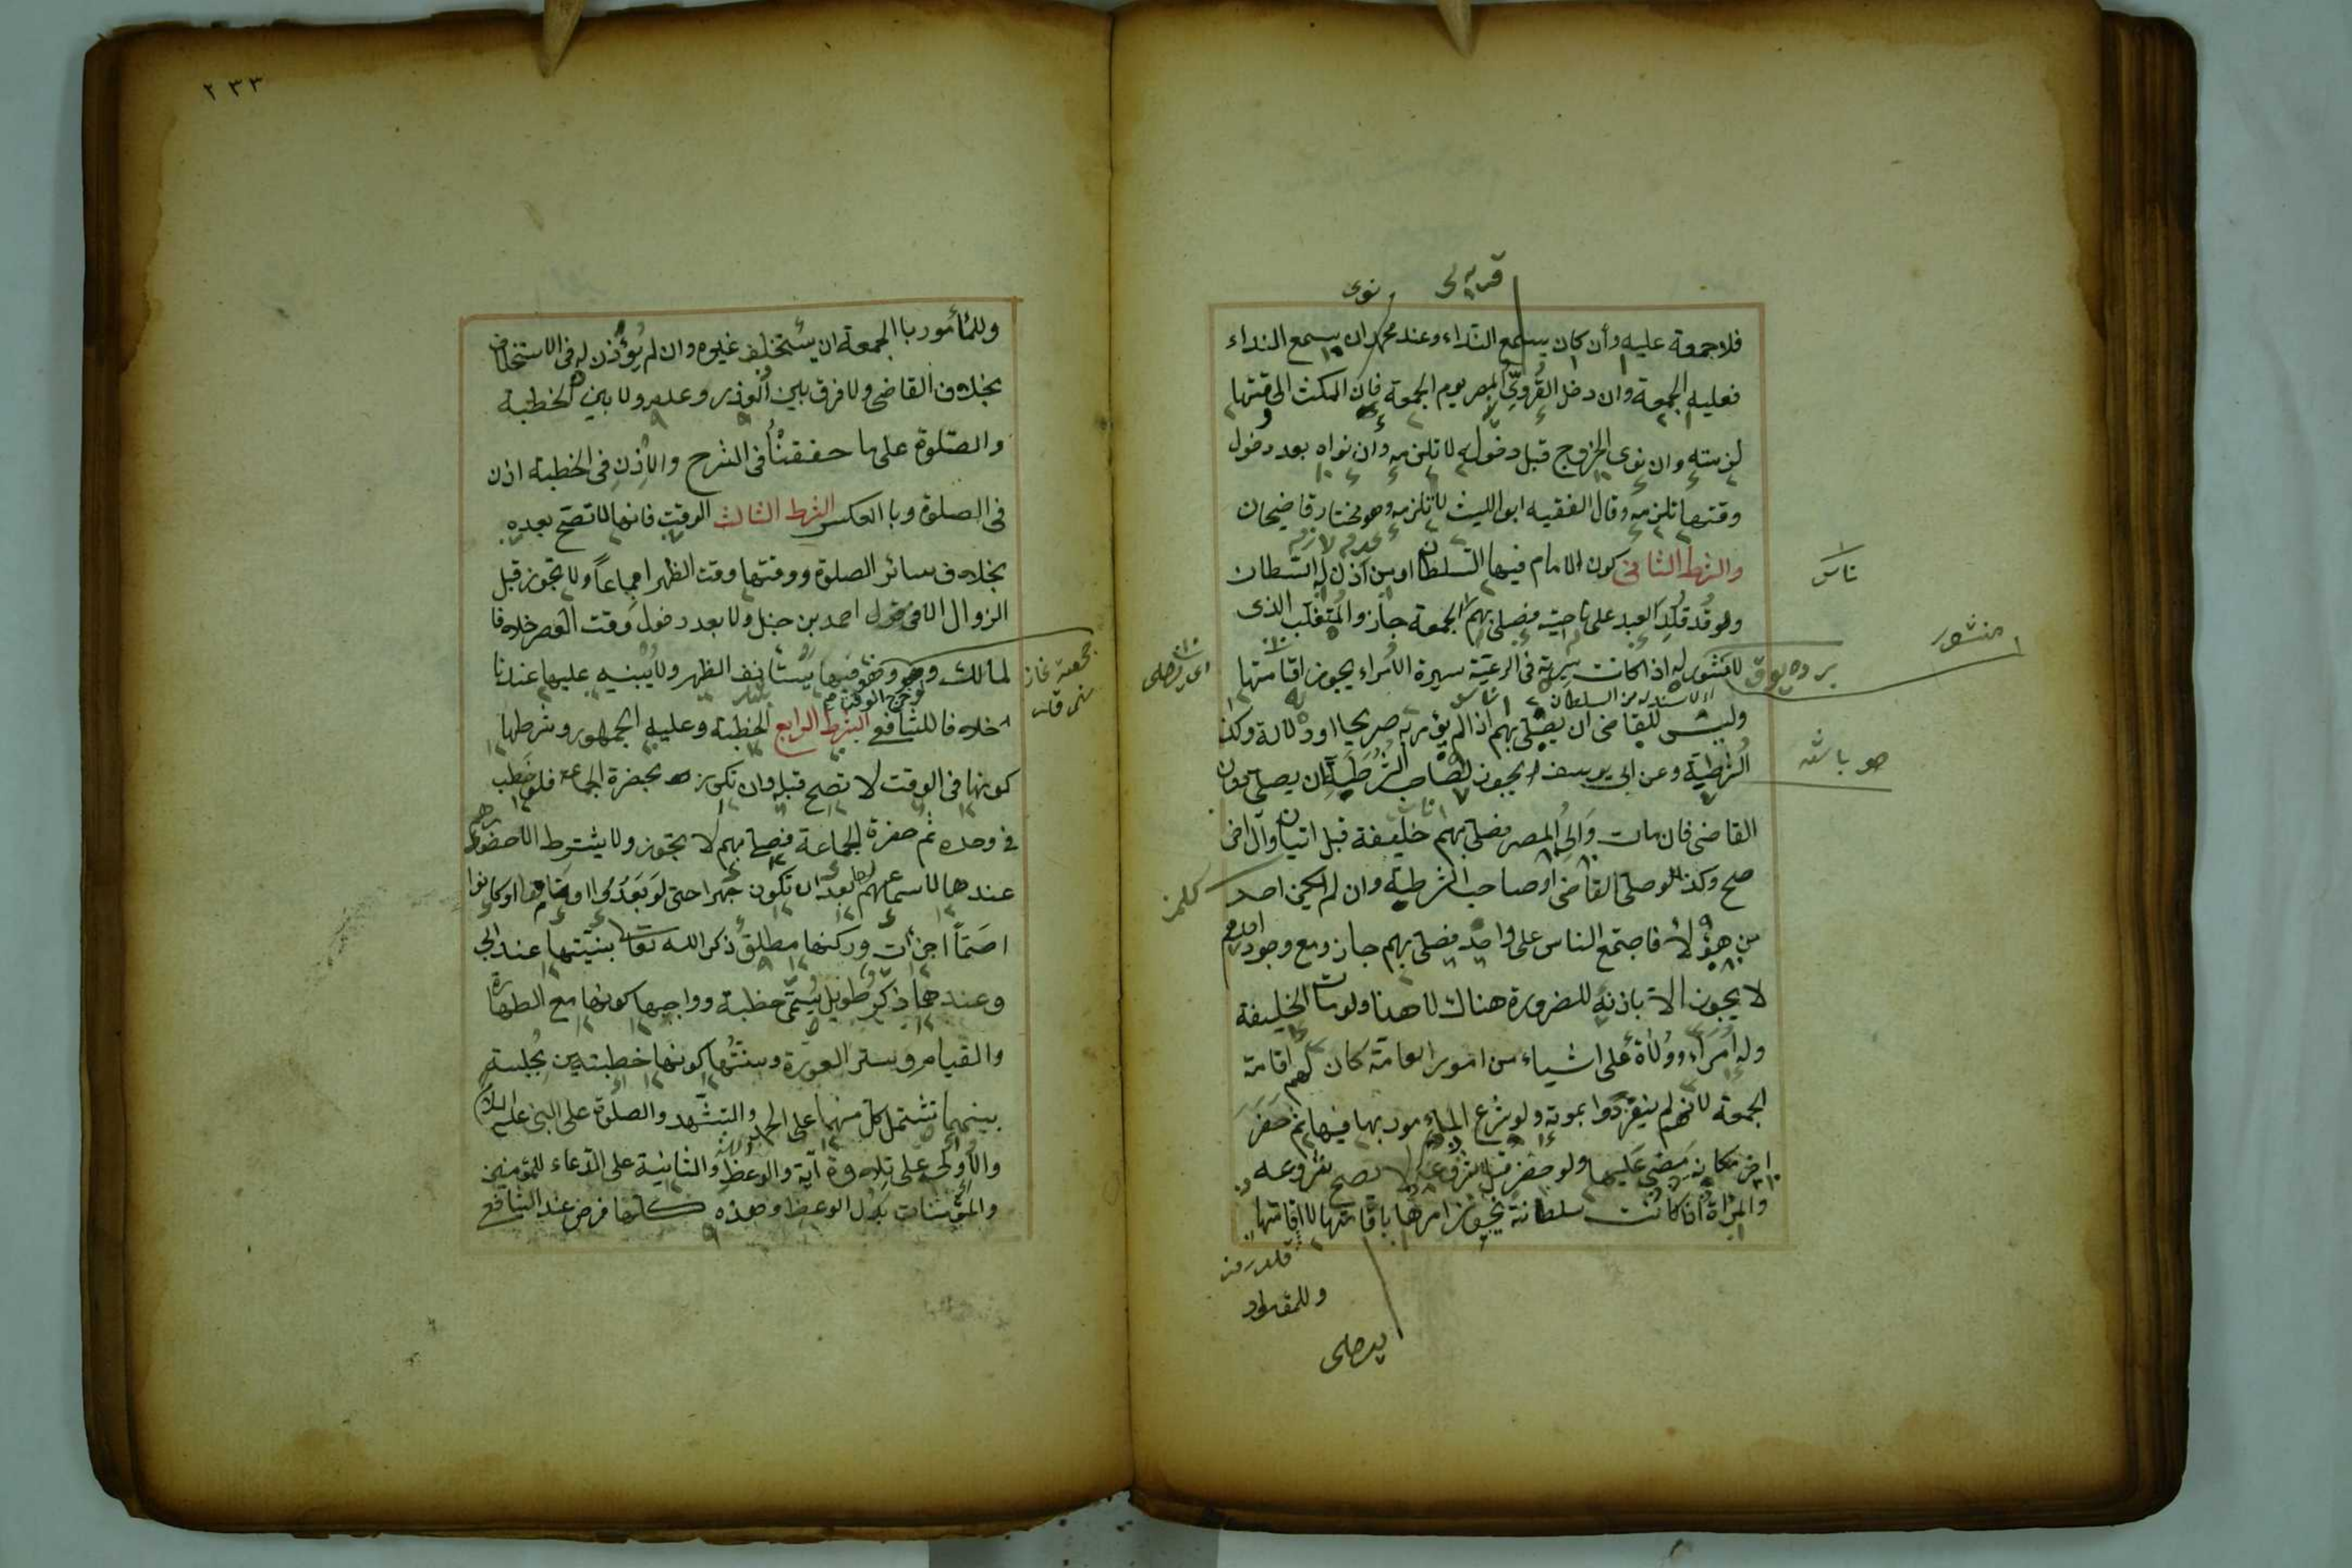 قريه لى
نوى
فلا جمعة عليه وأن كان يسمع النداء وعند محمد ان يسمع النداء
فعليه الجمعة وان دخل القُروىّ المصر يوم الجمعة فان المكث الى وقتها
لزمته وان نوى الخروج قبل دخوله لا تلزمه وان نواه بعد دخول
وقتها تلزمه وقال الفقيه ابو الليث لا تلزمه وهو مختار قاضيحان
والشرط الثانى كون الامام فيها السلطان او من اذن له السلطان
ولو قُد قُلِّدَ العبد على ناحية فصلى بهم الجمعة جاز والمُتَغَلِّب الذى
لا منشور له اذا كانت سيرته فى الرعيّة سيرة الاُمراء يجوز اقامتها
وليس للقاضى ان يصلّى بهم اذا لم يؤمر به صريحا او دلالة وكذا
الشُرَطِيّة وعن ابى يوسف يجوز لصاحب الشُرَطِيّة ان يصلّى دون
القاضى فان مات وَالِى المصر فصلى بهم خليفة قبل اتيان وآل اخر
صح وكذا لو صلى القاضى او صاحب الشرطية وان لم يكن احد
من هؤلاء فاجتمع الناس على واحد فصلى بهم جاز ومع وجود احدهم
لا يجوز الا باذنه للضرورة هناك لا هنا ولو مات الخليفة
وله اُمَراء ووُلاة على اشياء من امور العامّة كان لهم اقامة
الجمعة لانهم لم ينعزلوا بموته ولو شرع المأمور بها فيها ثم حَضَرَ
اخر مكانه مَضى عليها ولو حضر قبل شروعه لا تصح شروعه
والمرأة اذا كانت سلطانة يجوز امرها باقامتها لا اقامتها
ناس
منشور
صو باشه
كلمز
وللمأمور با الجمعة ان يستخلف غيره وان لم يُؤذن له فى الاستخلاف
بخلاف القاضى ولا فرق بين العُذر وعدمه ولا بين الخطبة
والصّلوة على ما حققنْا فى الشرح والاِذنِ فى الخطبة اذن
فى الصلوة وبا العكس الشرط الثالث الوقت فانها لا تصحّ بعده
بخلاف سائر الصلوة ووقتها وقت الظهر اجماعاً ولا يجوز قبل
الزوال الا فى قول احمد بن حنبل ولا بعد دخول وقت العصر خلافا
لمالك وهو فيها يستأنف الظهر ولا يُبْنيه عليها عندنا
لو خرج الوقت
خلافا للشافعى الشرط الرابع الخطبة وعليه الجمهور وشرطها
كونها فى الوقت لا تصح قبله وان تكون بحضرة الجماعة فلو خطب
فى وحده ثم حضرة الجماعة فصلى بهم لا يجوز ولا يشترط الا حضورهم
عندها لا سماعهم لها بعد ان تكون جهرا حتى لو بَعُدُوا او ناموا او كانوا
اصَمّاً اجزأت وركنها مطلق ذكر الله تعالى بنيّتها عند ابى
وعندهما ذكر طويل يُسَمّى خطبة وواجبها كونها مع الطهارة
والقيام وستر العورة وسنتُها كونها خطبتين بجُلسة
بينهما تشتمل كل منهما على الحمد والتشهد والصلوة على النبى عليه السلام
والاُولى على تِلاوة آية والوعظ والثانية على الدّعاء للمؤمنين
والمؤمنات بَدَل الوعظ وهذه كلها فرض عند الشافعى
وللمقلد
٢٣٣